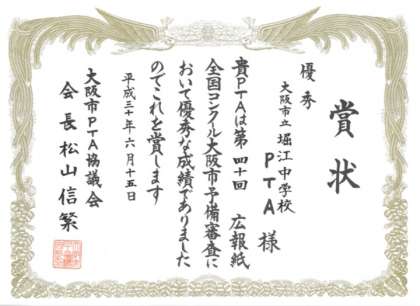 賞状
優秀
大阪市立 堀江中学校
PTA 様
貴PTAは第四十回 広報紙
全国コンクール大阪市予備審査に
おいて優秀な成績でありました
のでこれを賞します
平成三十年六月十五日
大阪市PTA協議会
会長 松山信繁